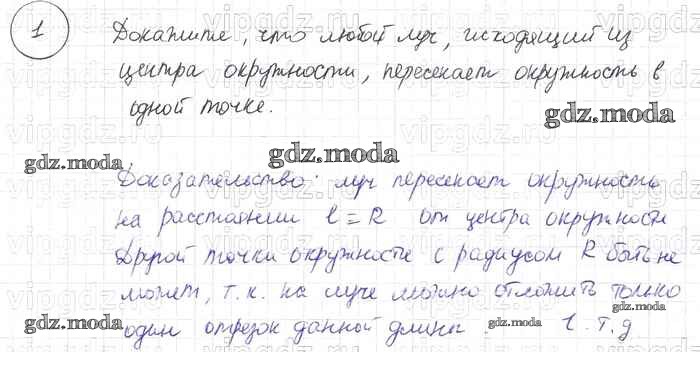 1 Докажите, что любой луч, исходящий из
центра окружности, пересекает окружность в
одной точке.
gdz.moda
gdz.moda
gdz.moda
Доказательство: луч пересекает окружность
на расстоянии l = R от центра окружности
Другой точки окружности с радиусом R быть не
может, т.к. на луче можно отложить только
один отрезок данной длины l. т.д
gdz.moda
gdz.moda
gdz.moda